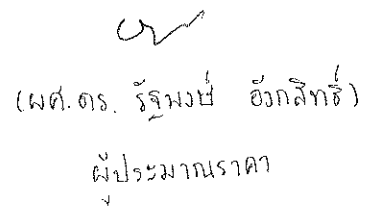 (ผศ.ดร. รัฐพงษ์ อังกสิทธิ์)
ผู้ประมาณราคา